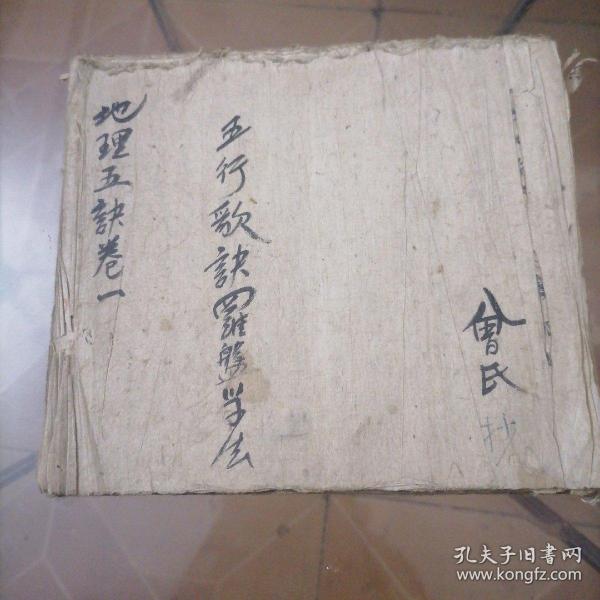 地理五訣卷一
五行歌訣羅盤学法
曾氏抄
孔夫子旧书网
www.kongfz.com